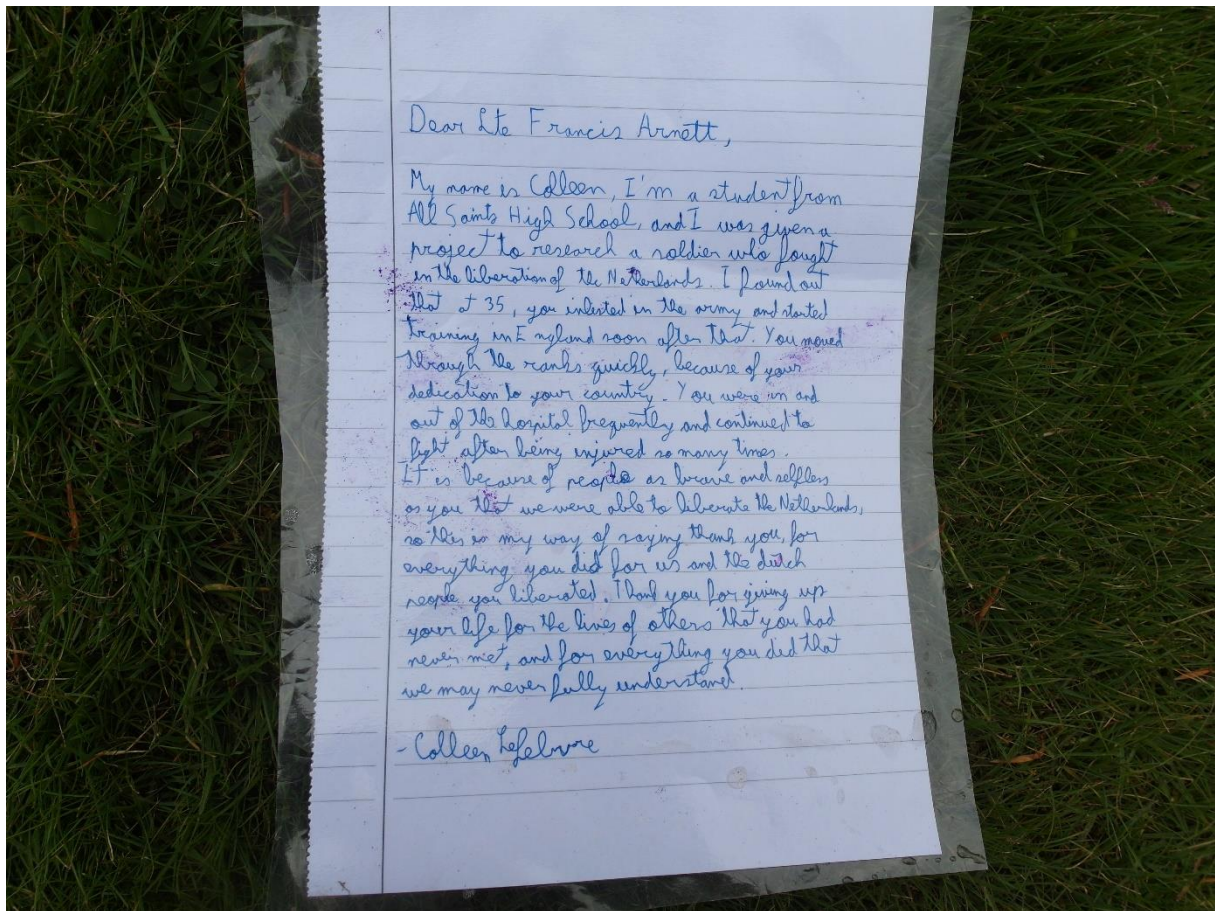 Dear Lte Francis Arnett,
My name is Colleen, I'm a student from
All Saints High School, and I was given a
project to research a soldier who fought
in the liberation of the Netherlands. I found out
that at 35, you inlested in the army and started
training in England soon after that. You moved
through the ranks quickly, because of your
dedication to your country. You were in and
out of the hospital frequently and continued to
fight after being injured so many times.
It is because of people as brave and selfless
as you that we were able to liberate the Netherlands,
so this is my way of saying thank you, for
everything you did for us and the dutch
people you liberated. Thank you for giving up
your life for the lives of others that you had
never met, and for everything you did that
we may never fully understand.
- Colleen Lefebvre